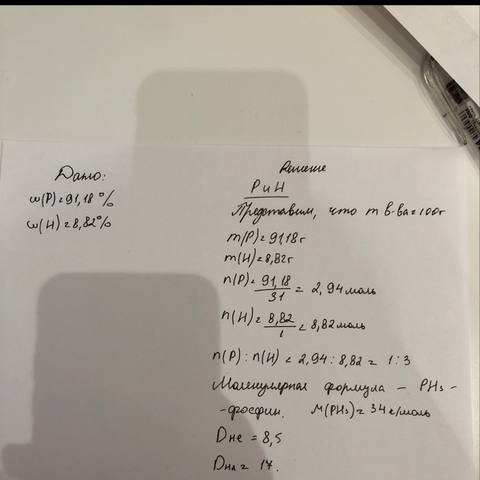 Дано:
w(P)=91,18%
w(H)=8,82%
Решение
P и H
Представим, что m в-ва=100г
m(P)=91,18г
m(H)=8,82г
n(P)=91,18/31=2,94 моль
n(H)=8,82/1=8,82моль
n(P):n(H)=2,94:8,82=1:3
Молекулярная формула – PH₃ –
-фосфин. M(PH₃)=34г/моль
Dне=8,5
Dн₂=17.